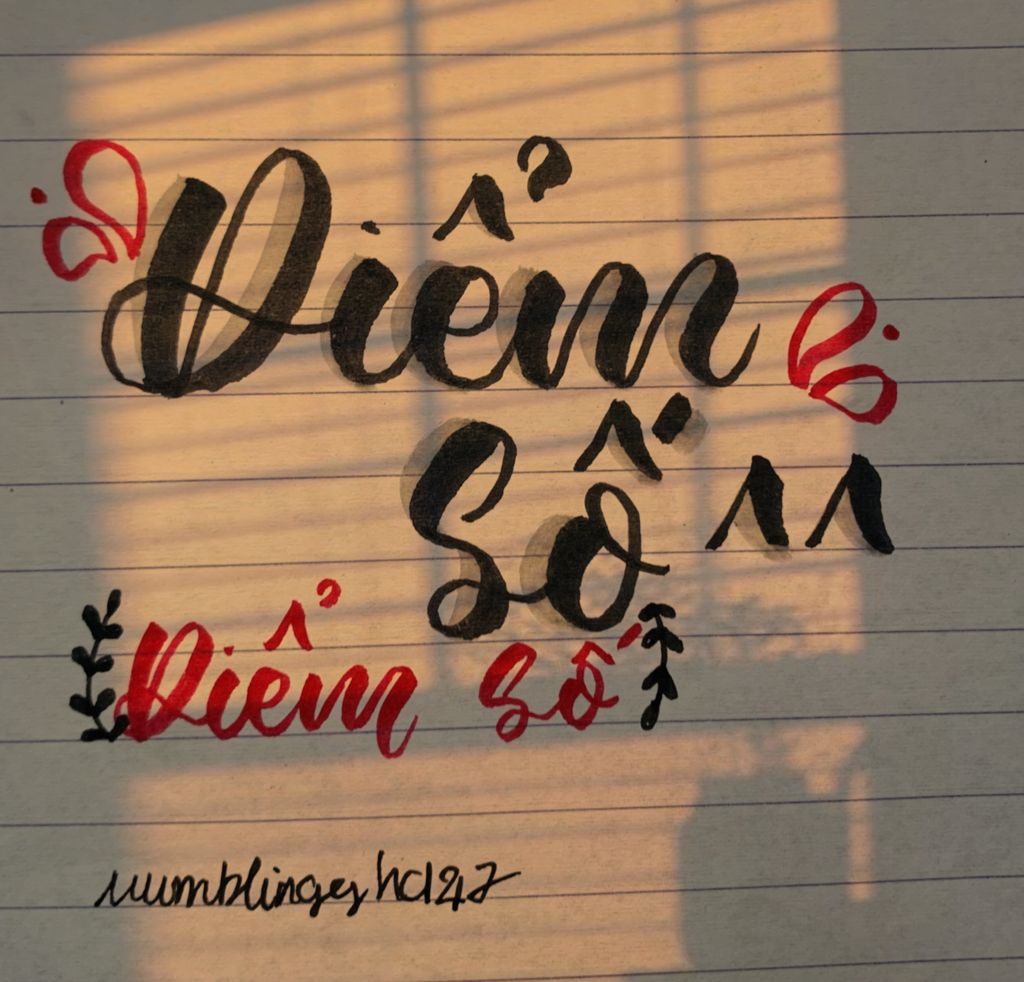 Điểm
Số 11
Điểm số